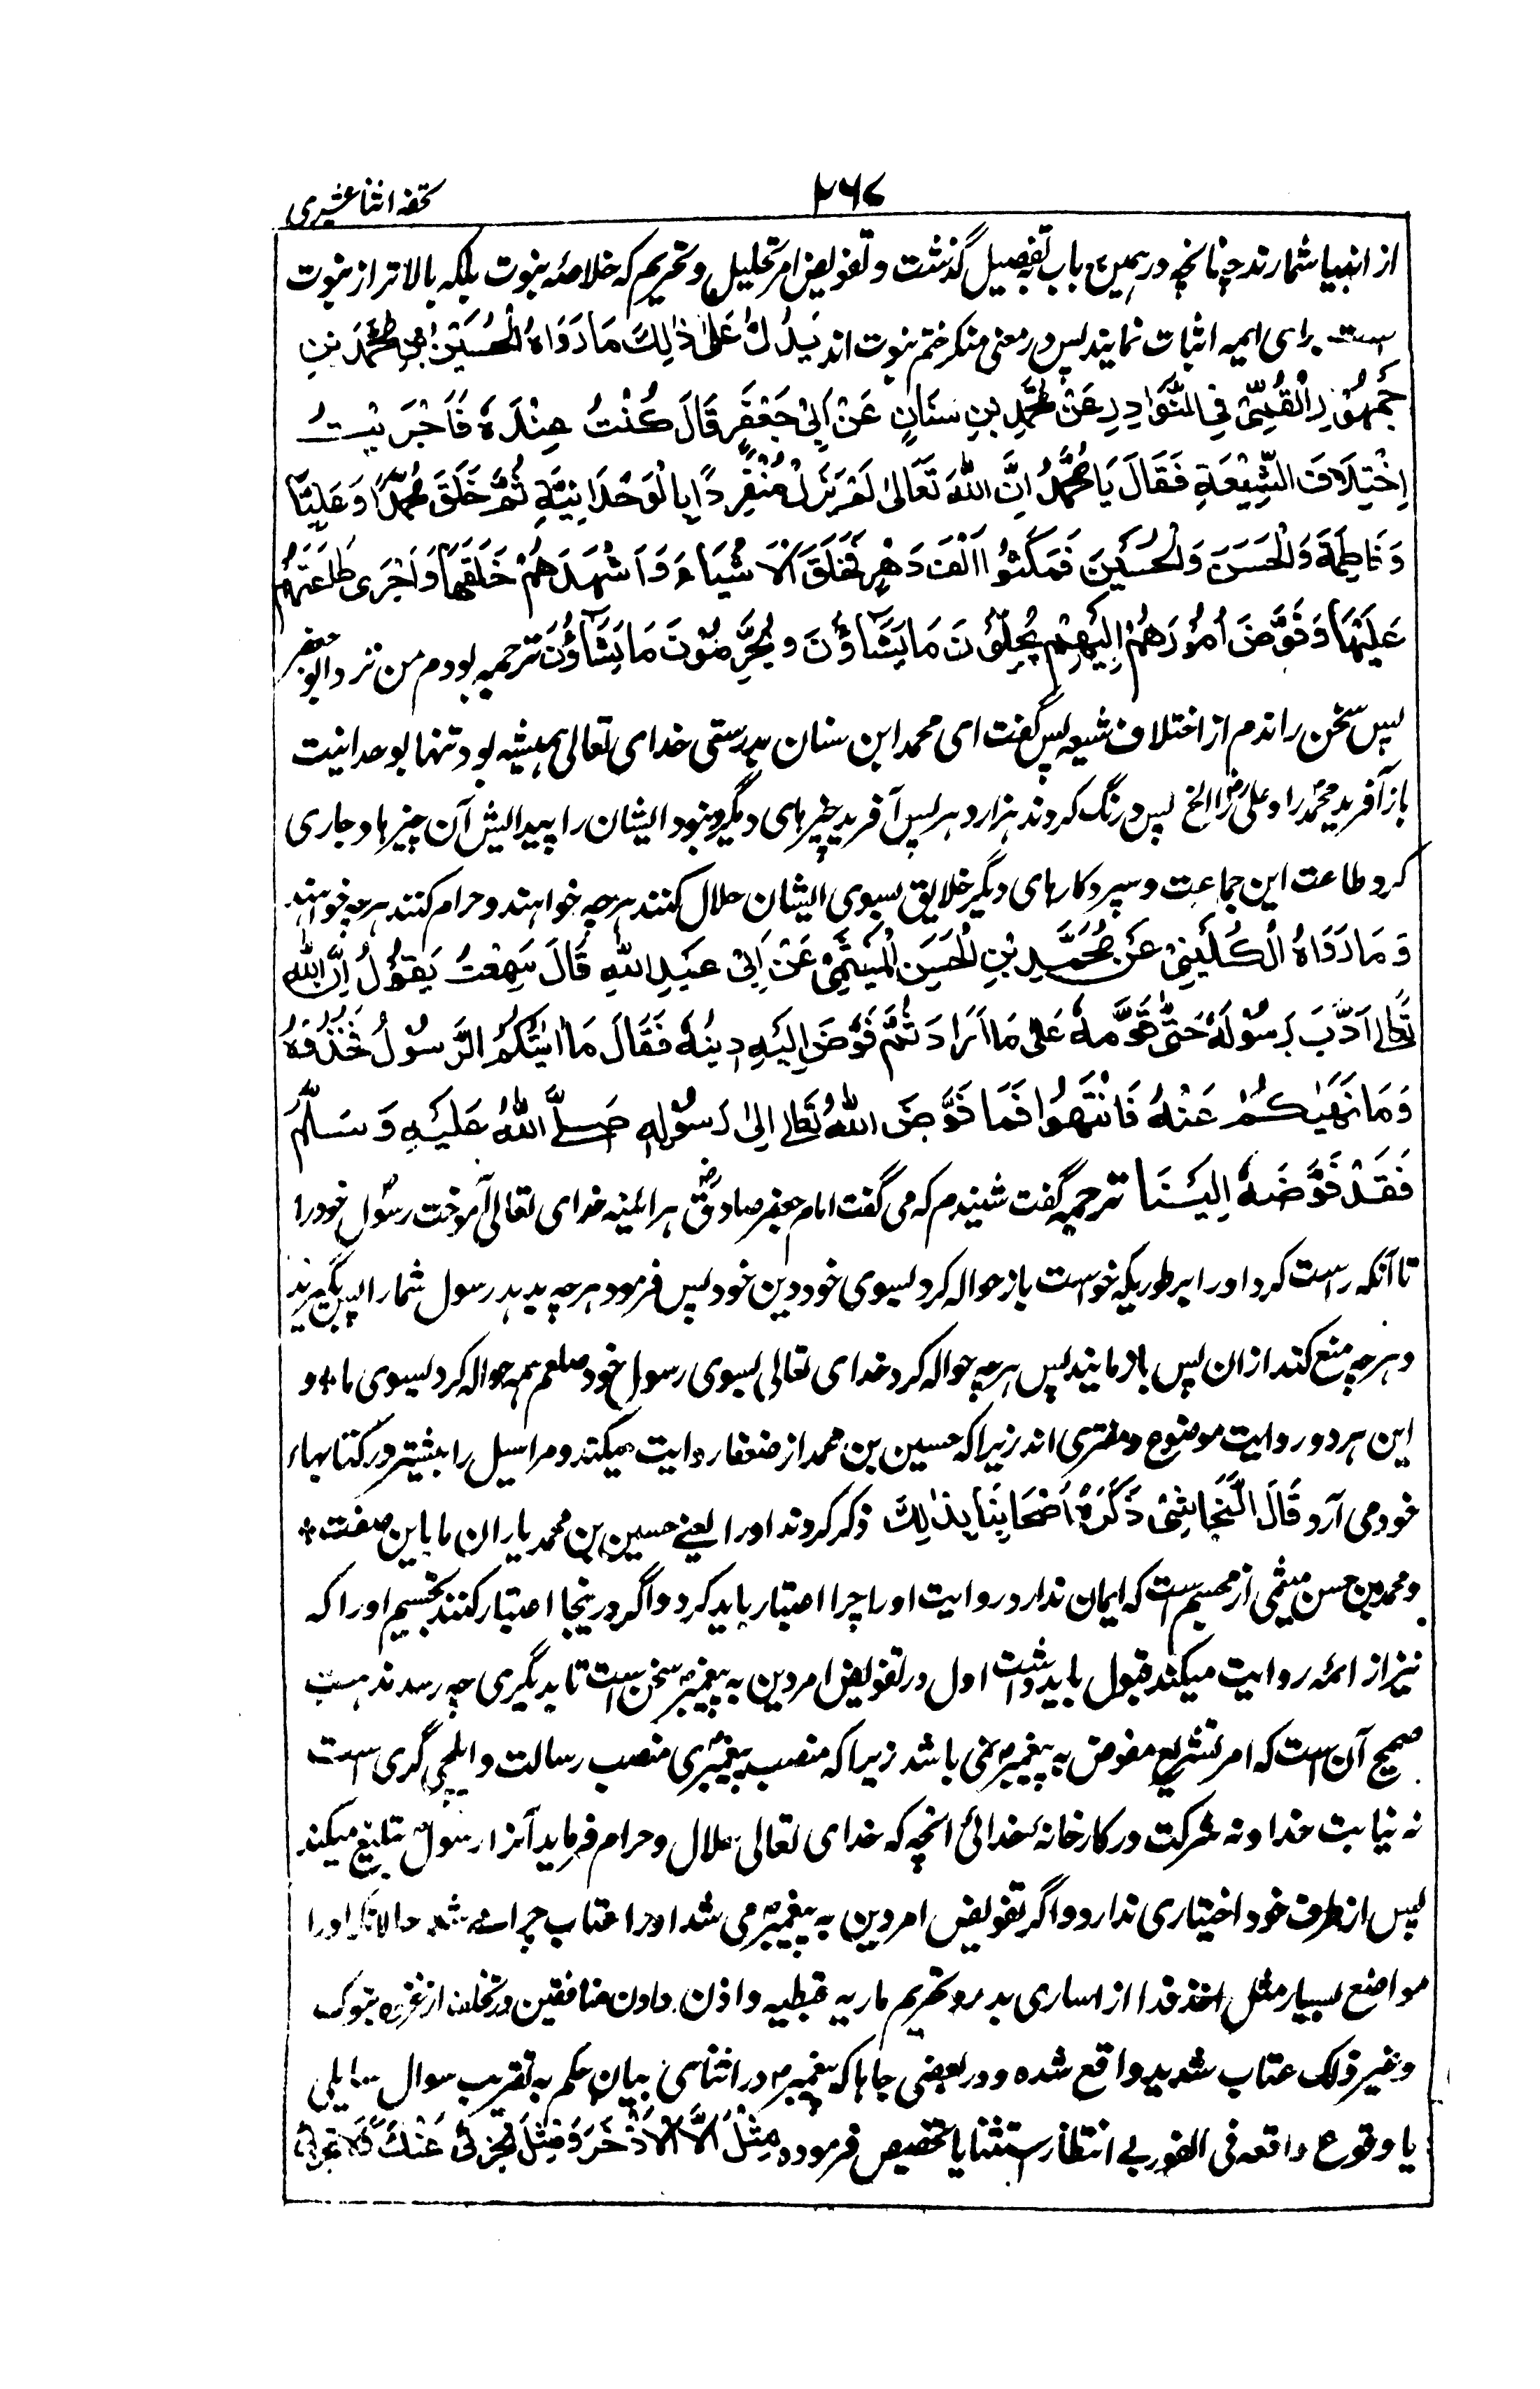 ۲۶۷
تحفه اثنا عشری
از انبیا شمارند چنانچه در همین باب بتفصیل گذشت و تفویض امر تحلیل و تحریم که خلاصهٔ نبوت بلکه بالاتر از نبوت
ست برای ایمه اثبات نمایند پس در معنی منکر ختم نبوت اند یَدُلُّ عَلیٰ ذٰلِكَ مَا رَوَاهُ الْحُسَیْنُ ابن مُحَمَّدَ بنِ
جُمْهُوْرِ الْقُمِّیْ فِی النَّوَادِرِ عَنْ مُحَمَّدِ بنِ سنَانٍ عَنْ اَبِیْ جَعْفَرٍ قَالَ كُنْتُ عِنْدَهٗ فَاَجْرَیْتُ
اِخْتِلَافَ الشِّیْعَةِ فَقَالَ یَا مُحَمَّدُ اِنَّ اللهَ تَعَالیٰ لَمْ یَزَلْ مُنْفَرِدًا بِالْوَحْدَانِیَّةِ ثُمَّ خَلَقَ مُحَمَّدًا وَ عَلِیًّا
وَ فَاطِمَةَ وَالْحَسَنَ وَالْحُسَیْنَ فَمَكَثُوْا اَلْفَ دَهْرٍ فَخَلَقَ الْاَشْیَاءَ وَ اَشْهَدَهُمْ خَلْقَهَا وَ اَجْرَی طَاعَتَهُمْ
عَلَیْهَا وَ فَوَّضَ اُمُوْرَهُمْ اِلَیْهِمْ یُحِلُّوْنَ مَا یَشَآؤُنَ و یُحَرِّمُوْنَ مَا یَشَآؤُنَ ترجمه بودم من نزد ابو جعفر
پس سخن راندم از اختلاف شیعه پس گفت ای محمد ابن سنان بدرستی خدای تعالی همیشه بود تنها بوحدانیت
باز آفرید محمد را و علی را الخ پس درنگ کردند هزار دهر پس آفرید چیزهای دیگر و نمود ایشان را پیدایش آن چیزها و جاری
کرد طاعت این جماعت و سپرد کارهای دیگر خلایق بسوی ایشان حلال کنند هرچه خواهند و حرام کنند هرچه خواهند
وَ مَا رَوَاهُ الْكُلَیْنِیْ عَن مُحَمَّدِ بْنِ الْحَسَنِ الْمِیْثَمِیْ عَنْ اَبِیْ عَبْدِ اللهِ قَالَ سَمِعْتُ یَقُوْلُ اِنَّ اللهَ
تَعَالیٰ اَدَّبَ رَسُوْلَهٗ حَتّٰی قَوَّمَهٗ عَلیٰ مَا اَرَادَ ثُمَّ فَوَّضَ اِلَیْهِ دِیْنَهٗ فَقَالَ مَا اٰتٰىكُمُ الرَّسُوْلُ فَخُذُوْهُ
وَ مَا نَهٰىكُمْ عَنْهُ فَانْتَهُوْا فَمَا فَوَّضَ اللهُ تَعَالیٰ اِلیٰ رَسُوْلِهٖ صَلَّی اللهُ عَلَیْهِ وَ سَلَّمَ
فَقَدْ فَوَّضَهٗ اِلَیْنَا ترجمه گفت شنیدم که می گفت امام جعفر صادق هر ائینه خدای تعالی آموخت رسول خود را
تا آنکه راست کرد او را بر طوریکه خواست باز حواله کرد بسوی خود دین خود پس فرمود هرچه بدهد رسول شما را پس بگیرید
و هرچه منع کند از ان پس باز مانید پس هرچه حواله کرد خدای تعالی بسوی رسول خود صلعم همه حواله کرد بسوی ما + و
این هر دو روایت موضوع و مفتری اند زیرا که حسین بن محمد از ضعفا روایت میکند و مراسیل را بیشتر در کتابهاء
خود می آرد قَالَ النَّجَاشِیْ ذَكَرَهٗ اَصْحَابُنَا بِذٰلِكَ ذکر کردند او را یعنے حسین بن محمد یاران ما باین صفت +
و محمد بن حسن میثمی از مجسمه ست که ایمان ندارد روایت او را چرا اعتبار باید کرد و اگر در ینجا اعتبار کنند تجسیم او را که
نیز از ائمه روایت میکند قبول باید داشت اول در تفویض امر دین به پیغمبر سخن ست تا بدیگری چه رسد مذهب
صحیح آن ست که امر تشریع مفوض به پیغمبر نمی باشد زیرا که منصب پیغمبری منصب رسالت و ایلچی گری ست
نه نیابت خدا و نه شرکت در کارخانهٔ خدائی انچه که خدای تعالی حلال و حرام فرماید آنرا رسول تبلیغ میکند
پس از طرف خود اختیاری ندارد و اگر تفویض امر دین به پیغمبر می شد او را عتاب چرا مے شد حالانکه او را
مواضع بسیار مثل اخذ فدا از اساری بدر و تحریم ماریه قبطیه و اذن دادن منافقین در تخلف از غزوه تبوک
و غیر ذلک عتاب شدید واقع شده و در بعضی جاها که پیغمبر در اثنای بیان حکم به تقریب سوال سایلی
یا وقوع واقعه فی الفور بے انتظار استثنا یا تخصیص فرموده مِثْلُ اِلَّا الْاَذْخَرَ وَ مِثْلَ تَجْزِئُ عَنْكَ وَ لَا تجزئ